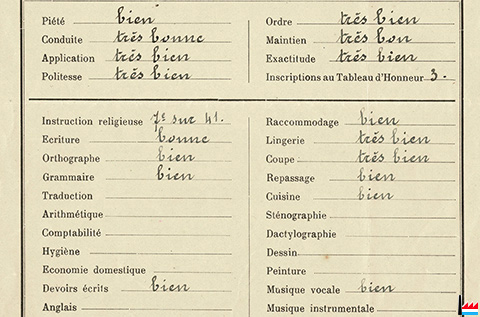 Piété bien
Conduite trés bonne
Application trés bien
Politesse trés bien
Ordre trés bien
Maintien trés bon
Exactitude trés bien
Inscriptions au Tableau d'Honneur 3.
Instruction religieuse 7e sur 41.
Ecriture bonne
Orthographe bien
Grammaire bien
Traduction
Arithmétique
Comptabilité
Hygiène
Economie domestique
Devoirs écrits bien
Anglais
Raccommodage bien
Lingerie trés bien
Coupe trés bien
Repassage bien
Cuisine bien
Sténographie
Dactylographie
Dessin
Peinture
Musique vocale bien
Musique instrumentale